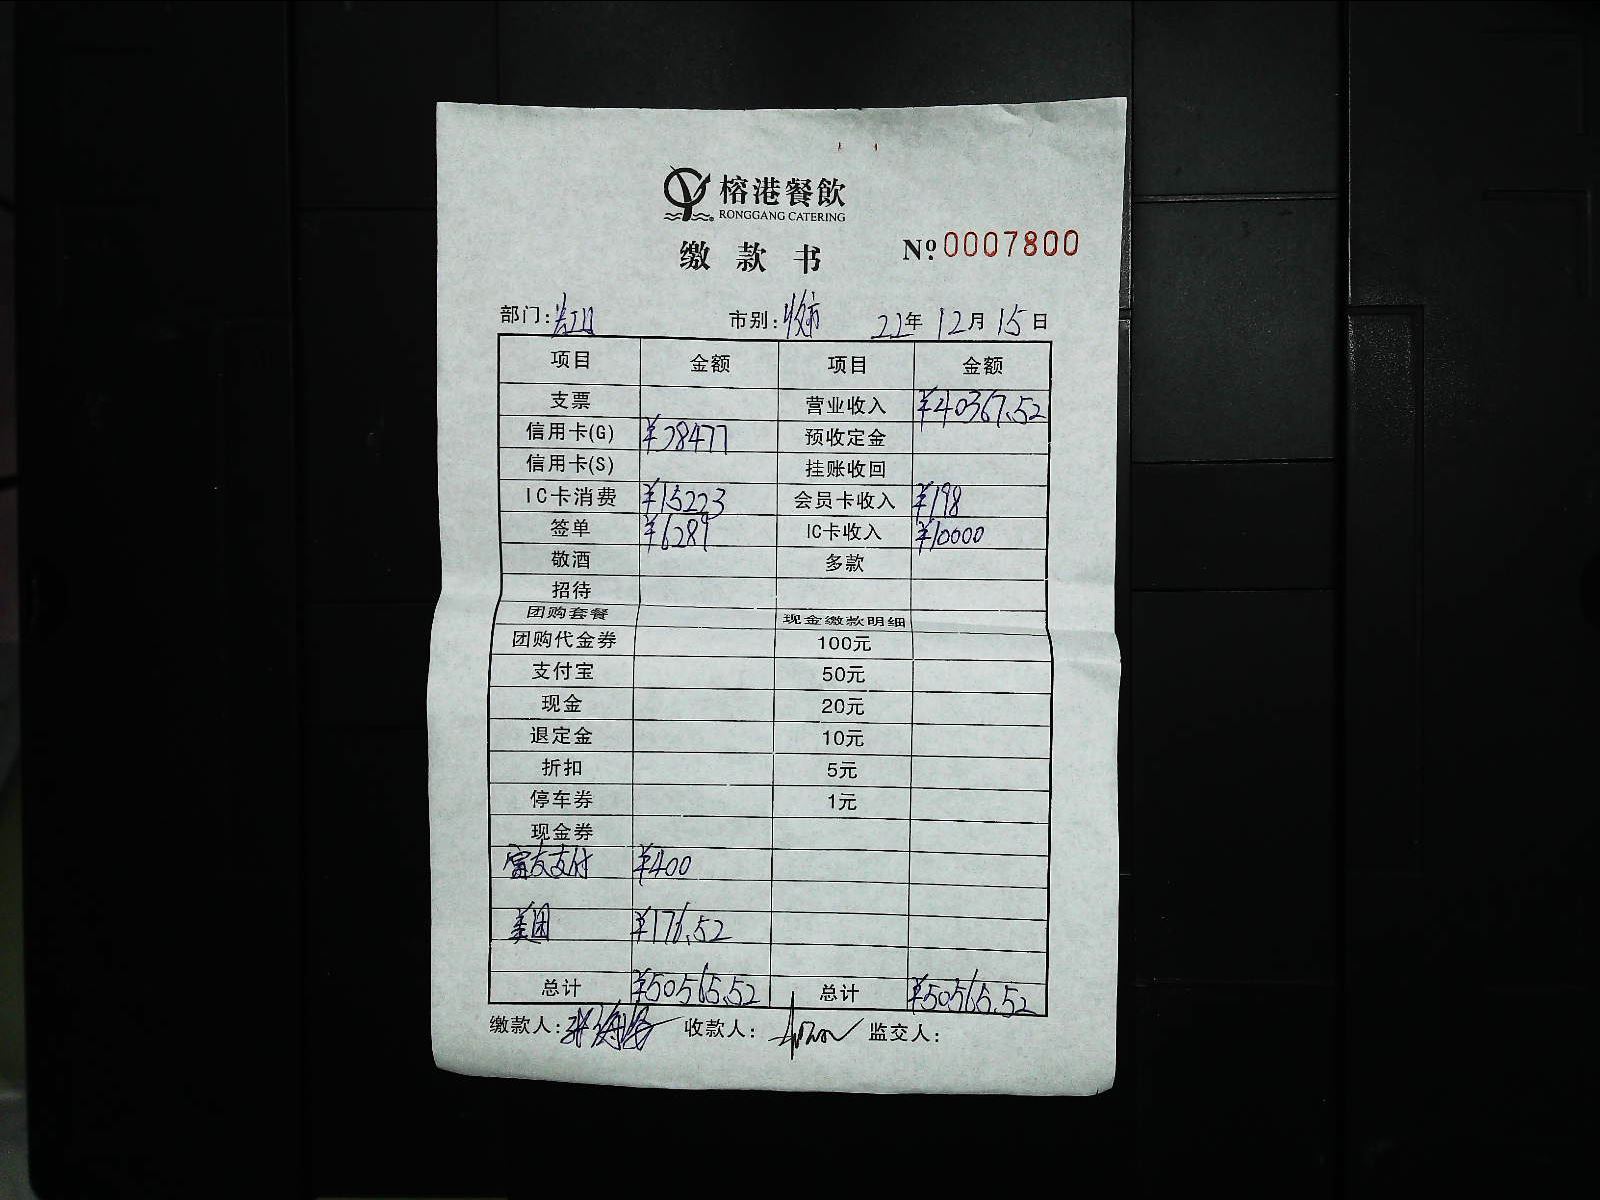 榕港餐飲
RONGGANG CATERING
缴款书 №0007800
部门: 市别:收市 22年12月15日
项目 金额 项目 金额
支票 营业收入 ¥40367.52
信用卡(G) ¥28477 预收定金
信用卡(S) 挂账收回
IC卡消费 ¥15223 会员卡收入 ¥198
签单 ¥6289 IC卡收入 ¥10000
敬酒 多款
招待
团购套餐 现金缴款明细
团购代金券 100元
支付宝 50元
现金 20元
退定金 10元
折扣 5元
停车券 1元
现金券
富友支付 ¥400
美团 ¥176.52
总计 ¥50565.52 总计 ¥50565.52
缴款人: 收款人: 监交人: